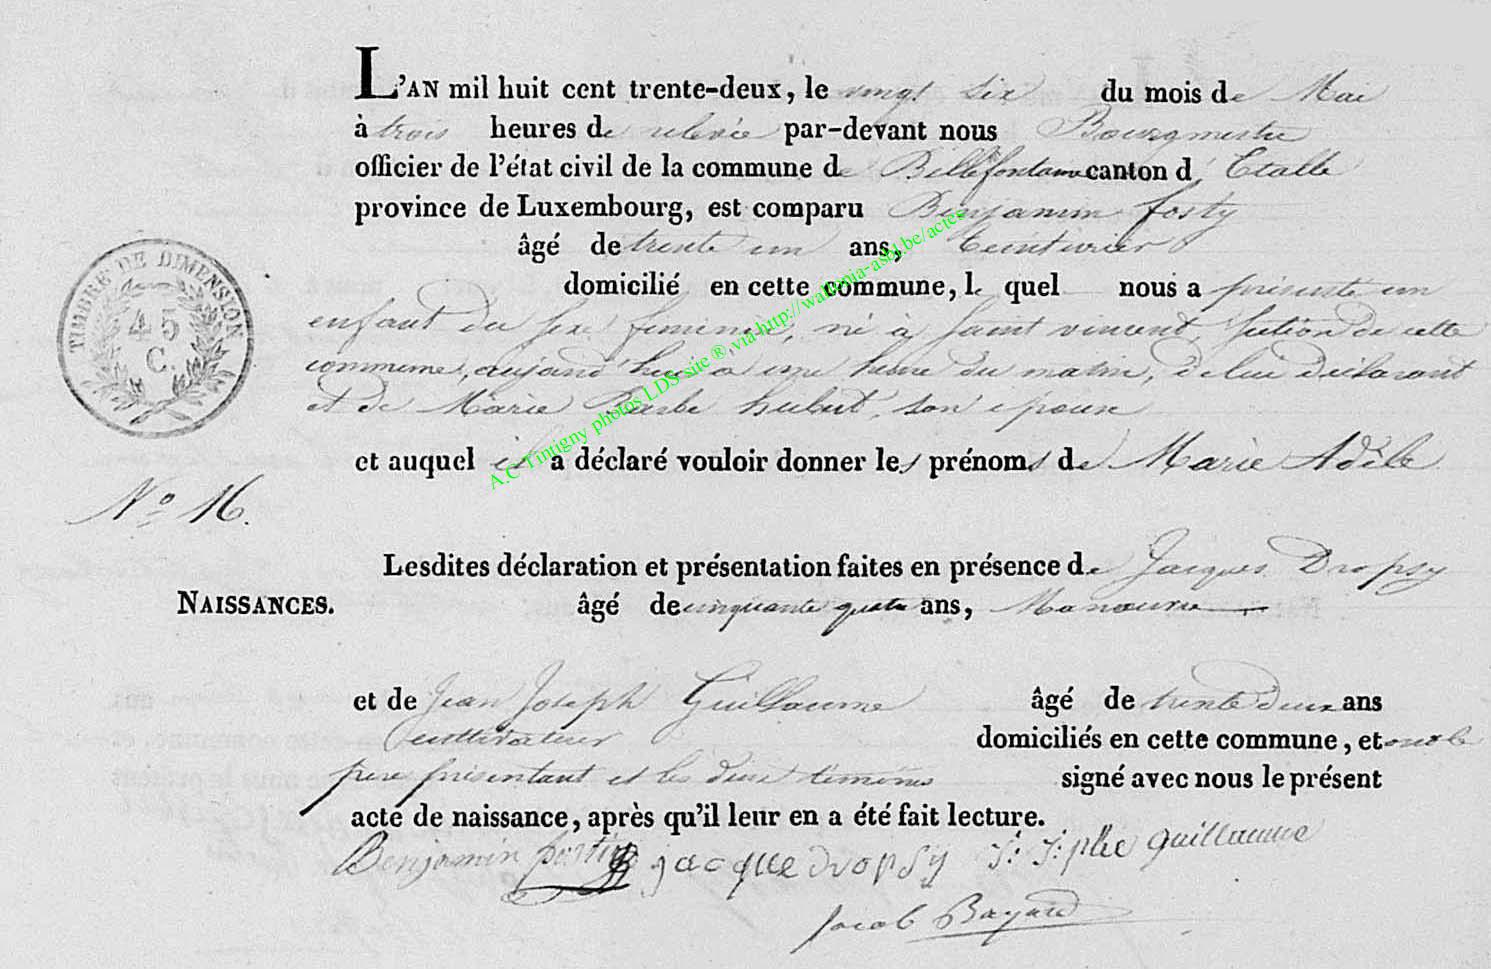 L'AN mil huit cent trente-deux, le vingt six du mois de Mai
à trois heures de relevée par-devant nous Bourgmestre
officier de l'état civil de la commune de Bellefontaine canton d' Etalle
province de Luxembourg, est comparu Benjamin fosty
âgé de trente un ans, teinturier
domicilié en cette commune, le quel nous a présenté un
enfant du sex feminin, né à Saint vincent, section de cette
commune, aujourd'hui à une heure du matin, de lui déclarant
et de Marie Barbe hubert, son epouse
et auquel il a déclaré vouloir donner les prénoms de Marie Adèle
No 16.
Lesdites déclaration et présentation faites en présence de Jacques Dropsy
NAISSANCES.
âgé de cinquante quatre ans, Manoeuvre
et de Jean Joseph Guillaume âgé de trente deux ans
Cultivateur domiciliés en cette commune, et ont le
pere présentant et les deux témoins signé avec nous le présent
acte de naissance, après qu'il leur en a été fait lecture.
Benjamin jacque dropsy J: J:phe guillaume
Jacob Bayard
TIMBRE DE DIMENSION
45
C.
A.C Tintigny photos LDS site ® via http://wallonia-asbl.be/actes